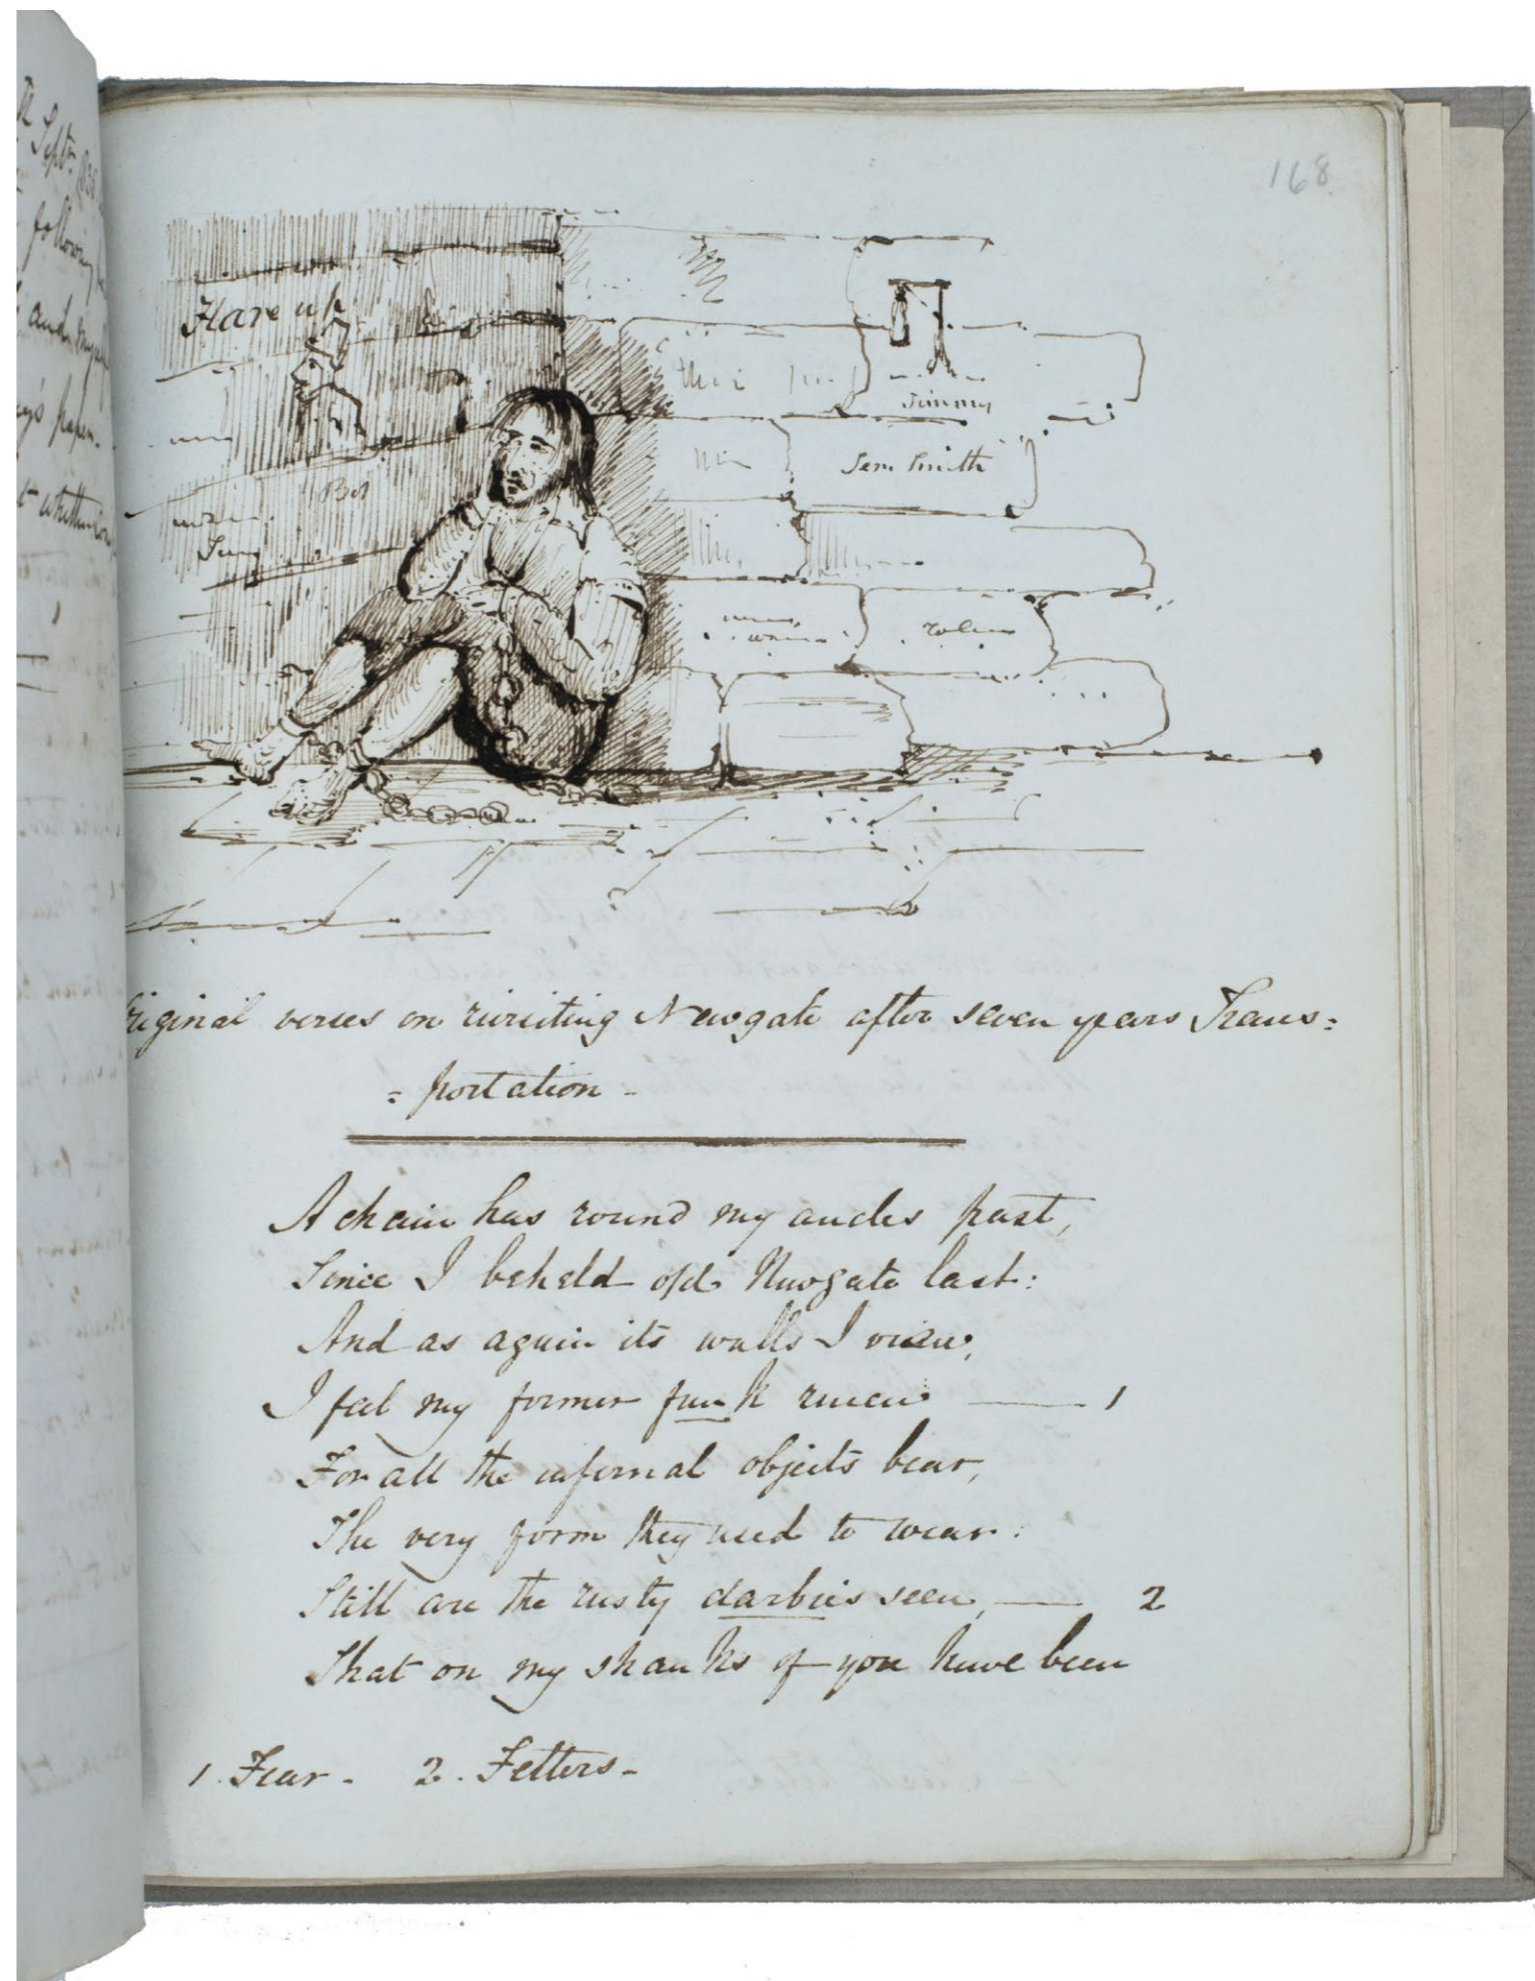 168.
Flare up
Jimmy
Sem Smith
Bet
Original verses on revisiting Newgate after seven years Trans=
=portation -
A chain has round my ancles past,
Since I beheld old Newgate last:
And as again its walls I view,
I feel my former funk renew —— 1
For all the infernal objects bear,
The very form they used to wear:
Still are the rusty darbies seen, —— 2
That on my shanks of you have been
1. Fear - 2. Fetters -
Septr. 1838
following
and my
paper.